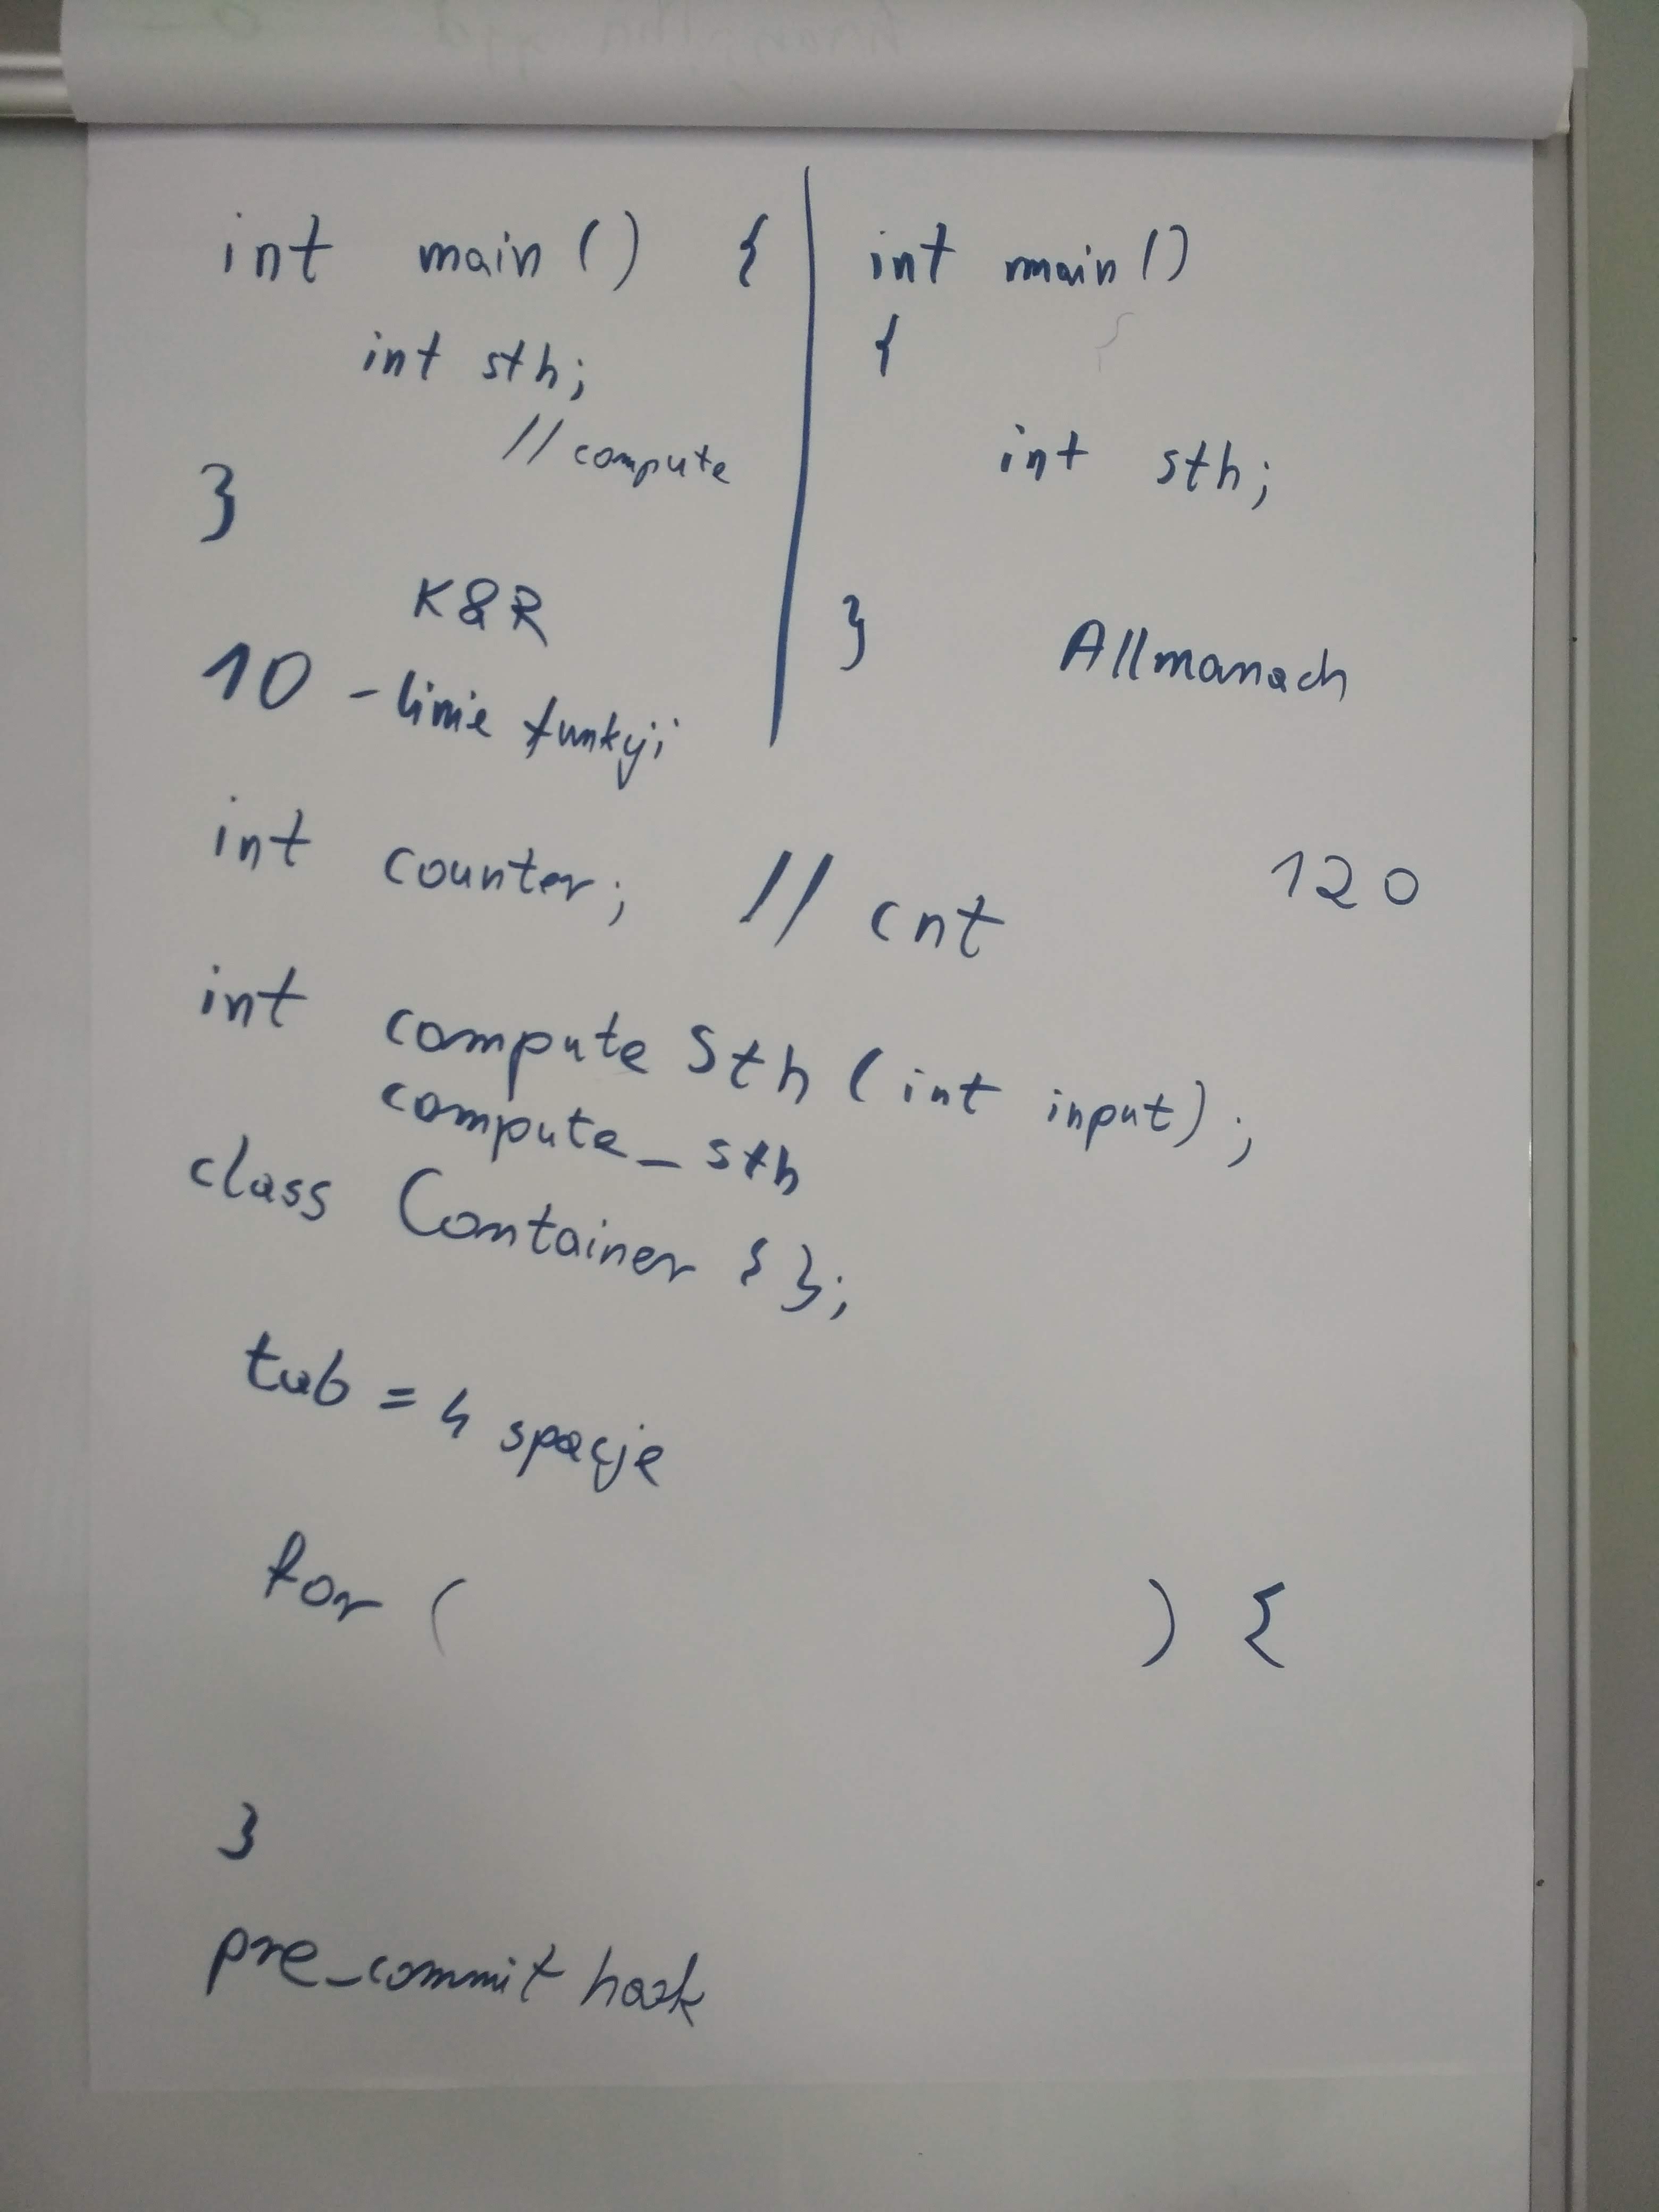 int main () {
int sth;
// compute
}
K&R
int main ()
{
int sth;
}
Allmanach
10 - linie funkcji
int counter; // cnt
120
int compute Sth (int input);
compute_sth
class Container { };
tab = 4 spacje
for ( ) {
}
pre_commit hook